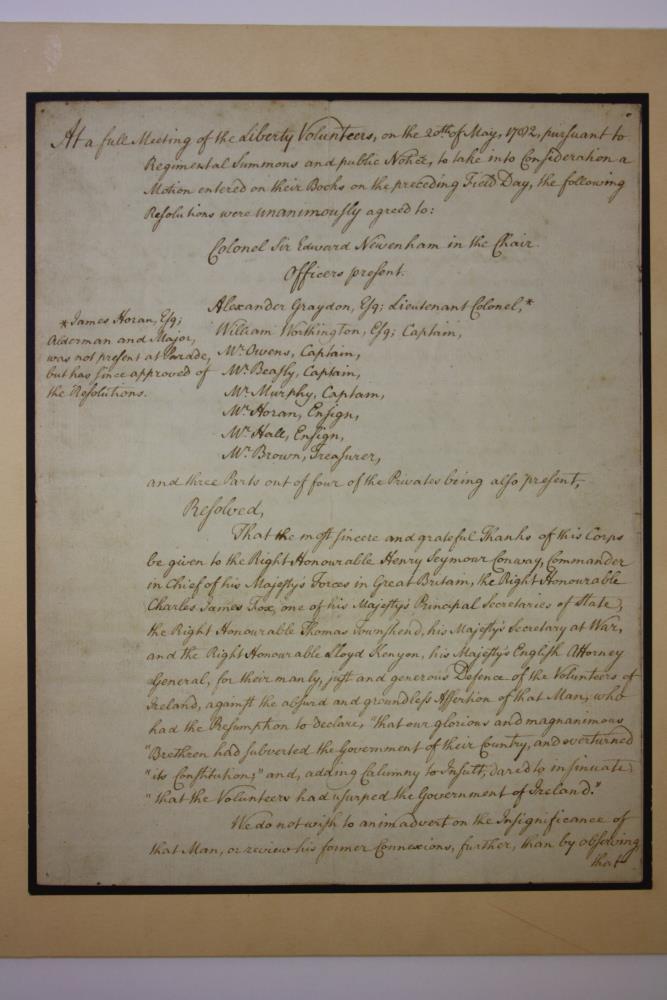 At a full Meeting of the Liberty Volunteers, on the 20th of May, 1782, pursuant to
Regimental Summons and public Notice, to take into Consideration a
Motion entered on their Books on the preceding Field Day, the following
Resolutions were unanimously agreed to:
Colonel Sir Edward Newenham in the Chair.
Officers present.
Alexander Graydon, Esq; Lieutenant Colonel,*
William Worthington, Esq; Captain,
Mr. Owens, Captain,
Mr. Beasly, Captain,
Mr. Murphy, Captain,
Mr. Horan, Ensign,
Mr. Hall, Ensign,
Mr. Brown, Treasurer,
*James Horan, Esq;
Alderman and Major,
was not present at Parade,
but has since approved of
the Resolutions.
and three Parts out of four of the Privates being also present,
Resolved,
That the most sincere and grateful Thanks of this Corps
be given to the Right Honourable Henry Seymour Conway, Commander
in Chief of his Majesty's Forces in Great Britain, the Right Honourable
Charles James Fox, one of his Majesty's Principal Secretaries of State,
the Right Honourable Thomas Townshend, his Majesty's Secretary at War,
and the Right Honourable Lloyd Kenyon, his Majesty's English Attorney
General, for their manly, just and generous Defence of the Volunteers of
Ireland, against the absurd and groundless Assertion of that Man, who
had the Presumption to declare, "that our glorious and magnanimous
"Brethren had subverted the Government of their Country, and overturned
"its Constitution;" and, adding Calumny to Insult, dared to insinuate
"that the Volunteers had usurped the Government of Ireland."
We do not wish to animadvert on the Insignificance of
that Man, or review his former Connexions, further, than by observing
that